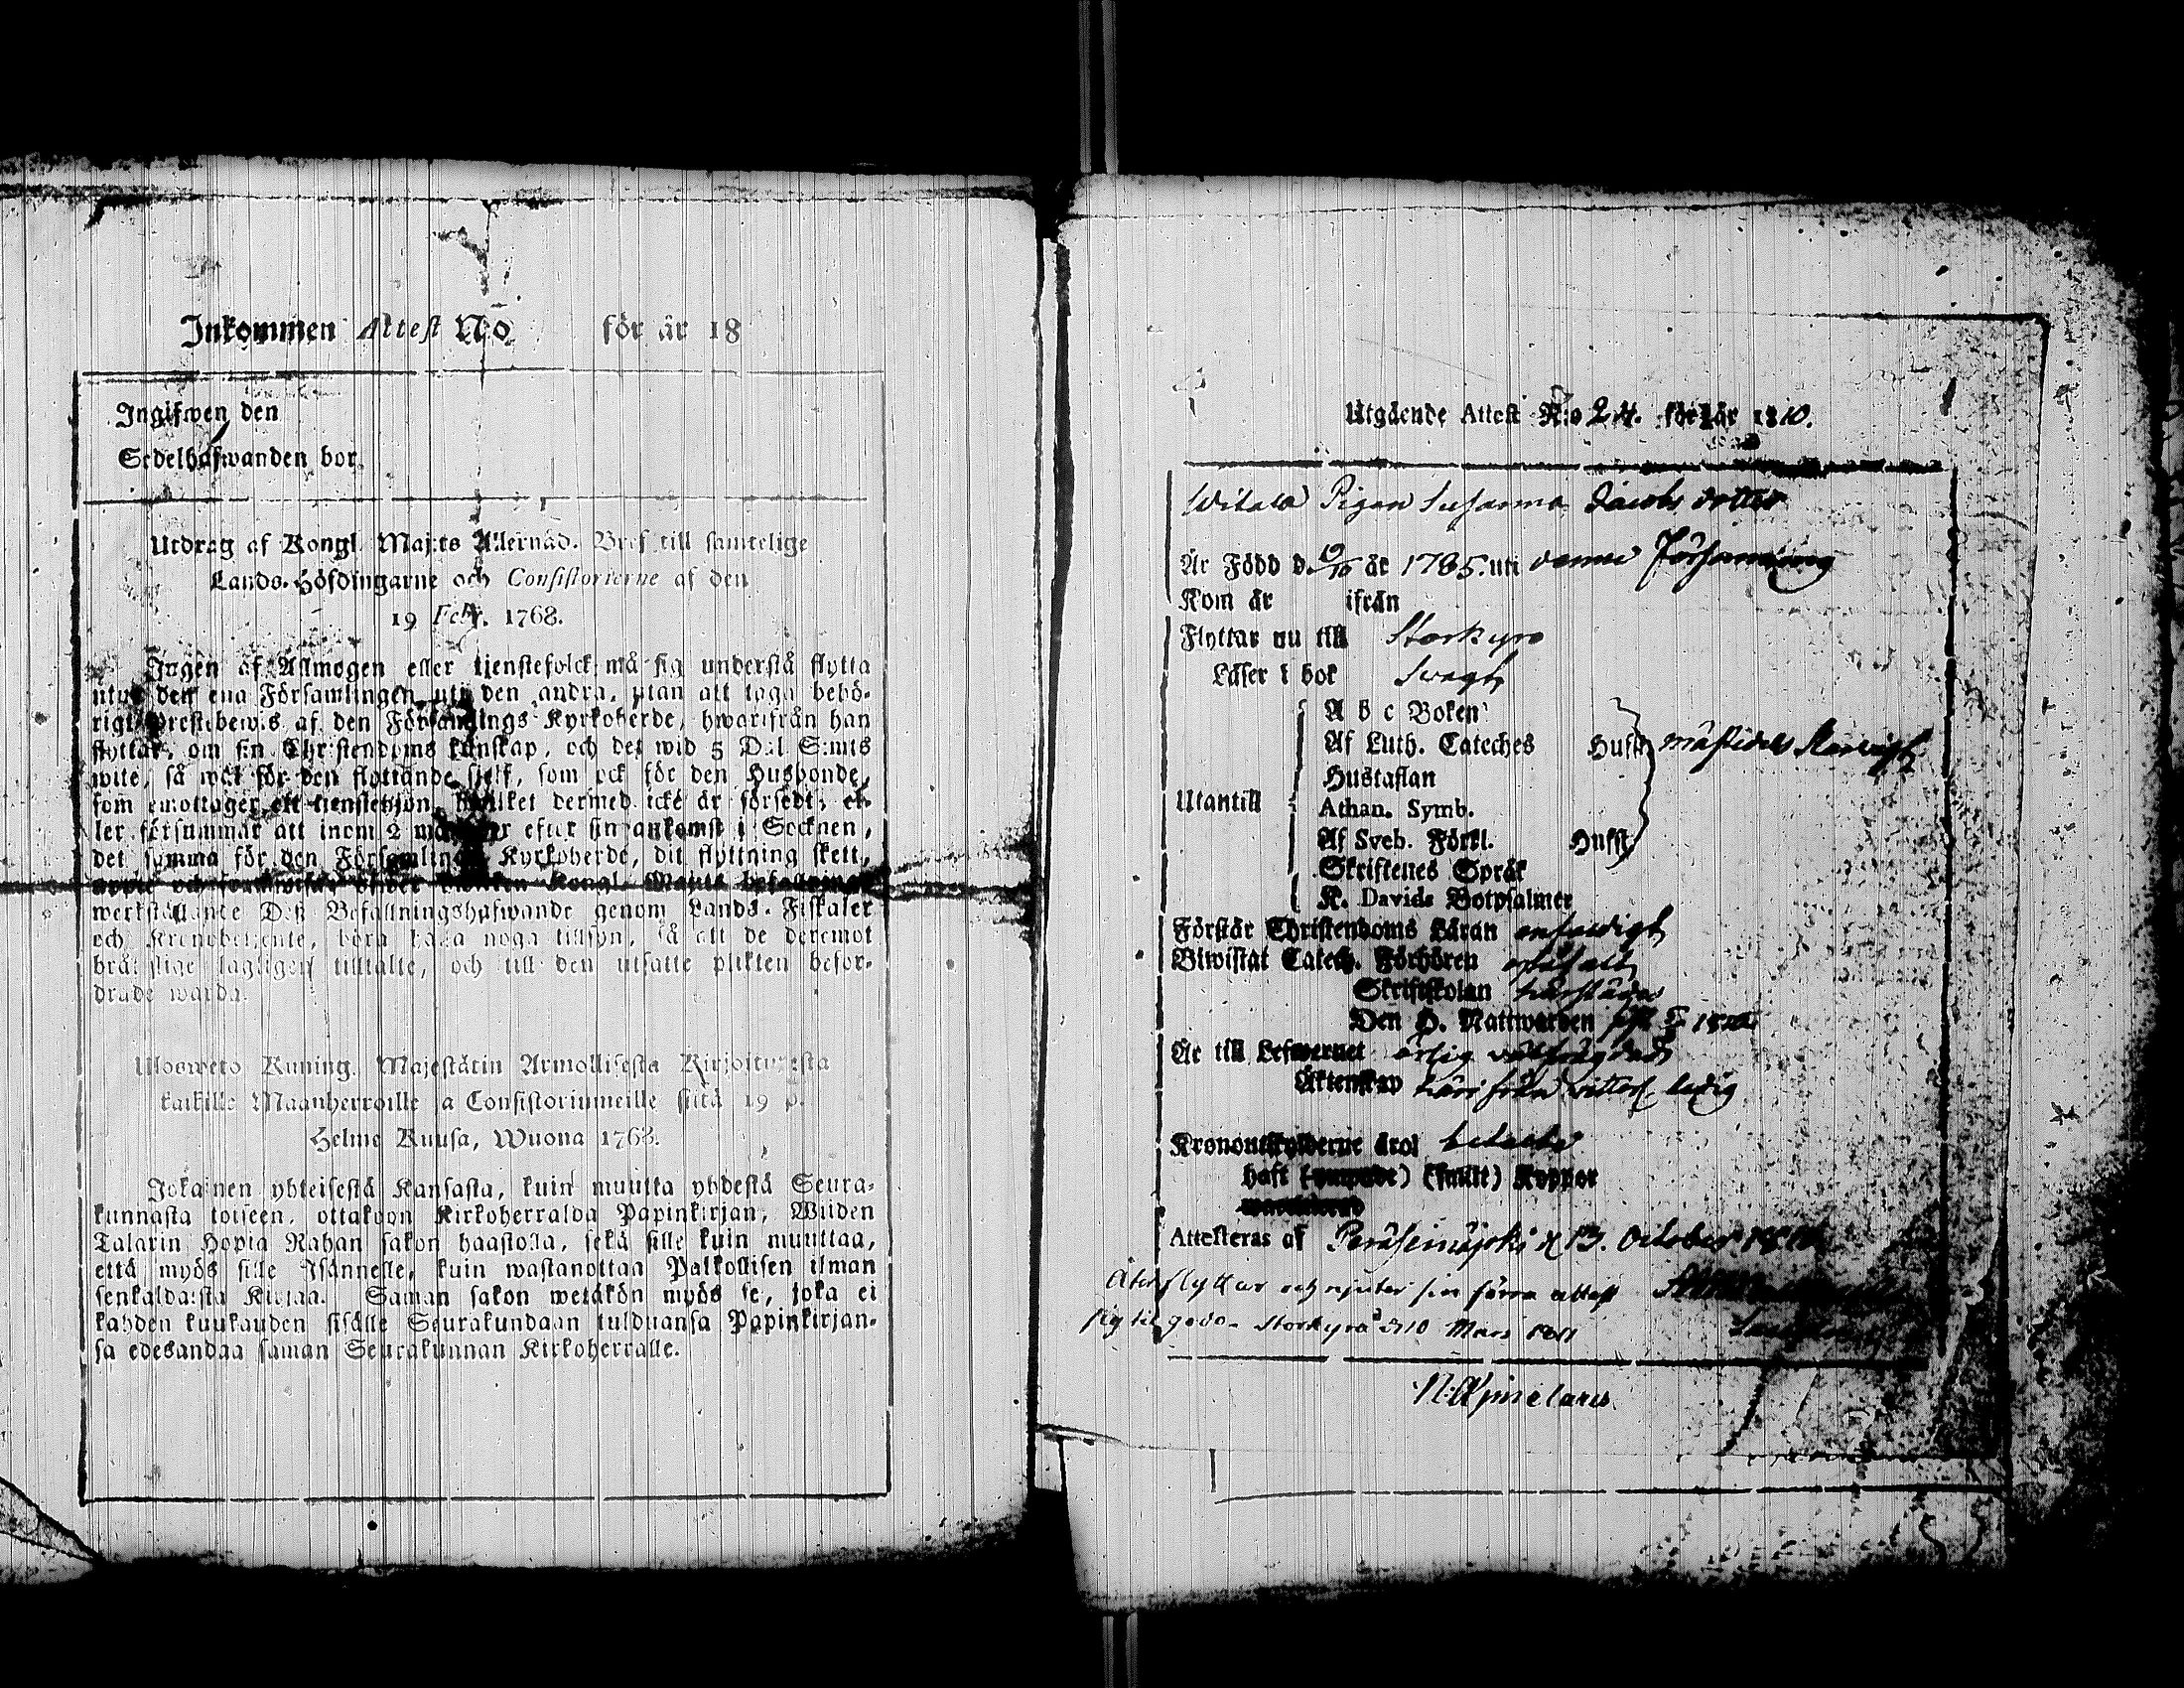 Inkommen Attest N:o för år 18
Ingifwen den
Sedelhafwanden bor
Utdrag af Kongl. Maj:ts Allernåd. Bref till samtelige
Lands-Höfdingarne och Consistorierne af den
19 Febr. 1768.
Ingen af Allmogen eller tjenstefolck må sig understå flytta
utur den ena Församlingen uti den andra, utan att taga behö-
rigt Prestebewis af den Församlings Kyrkoherde, hwarifrån han
flyttar, om sin Christendoms kunskap, och det wid 5 Dal. S:mts
wite, så wäl för den flyttande sjelf, som ock för den Husbonde,
som emottager ett tienstehjon, hwilket dermed icke är försedt, el-
ler försummar att inom 2 månader efter sin ankomst i Socknen,
det samma för den Församlings Kyrkoherde, dit flyttning skett,
Kongl. Maj:ts
werkställande Deß Befallningshafwande genom Lands-Fiskaler
och Kronobetjente, böra hafa noga tillsyn, så att de deremot
brätslige lagligen tilltalte, och till den utsatte plikten befor-
drade warda.
Ulosweto Kuning. Majestätin Armollisesta Kirjoituxesta
kaikille Maanherroille ja Consistoriumeille siitä 19 p.
Helme Kuusa, Wuona 1768.
Jokainen yhteisestä Kansasta, kuin muutta yhdestä Seura-
kunnasta toiseen, ottakoon Kirkoherralda Papinkirjan, Wiiden
Talarin Hopia Rahan sakon haastolla, sekä sille kuin muuttaa,
että myös sille Isännelle, kuin wastanottaa Palkollisen ilman
senkaldaista Kirjaa. Saman sakon wetäkön myös se, joka ei
kahden kuukauden sisälle Seurakundaan tulduansa Papinkirjan-
sa edesandaa saman Seurakunnan Kirkoherralle.
Utgående Attest N:o 24. för år 1810.
Pigan Susanna Jacobs dotter
Är Född d. 19/10 år 1785. uti denna Församling
Kom år ifrån
Flyttar nu till Storkyro
Läser i bok Swagt
A b c Boken
Af Luth. Cateches Hufst
Hustaflan
Utantill Athan. Symb.
Af Sveb. Förkl. Hufst
Skriftenes Språk
K. Davids Botpsalmer
Förstår Christendoms Läran enfaldigt
Biwistat Catech. Förhören
Skriftskolan
Den H. Nattwarden
Är till Lefwernet ärlig
Äktenskap härifrån ledig
Kronoutskylderne äro betalte
haft (smått) Koppor
Attesteras af Peräseinäjoki d 13. October 1810
Åter flyttar och njuter sin förra attest
sig til godo. Storkyro d 10 Mars 1811